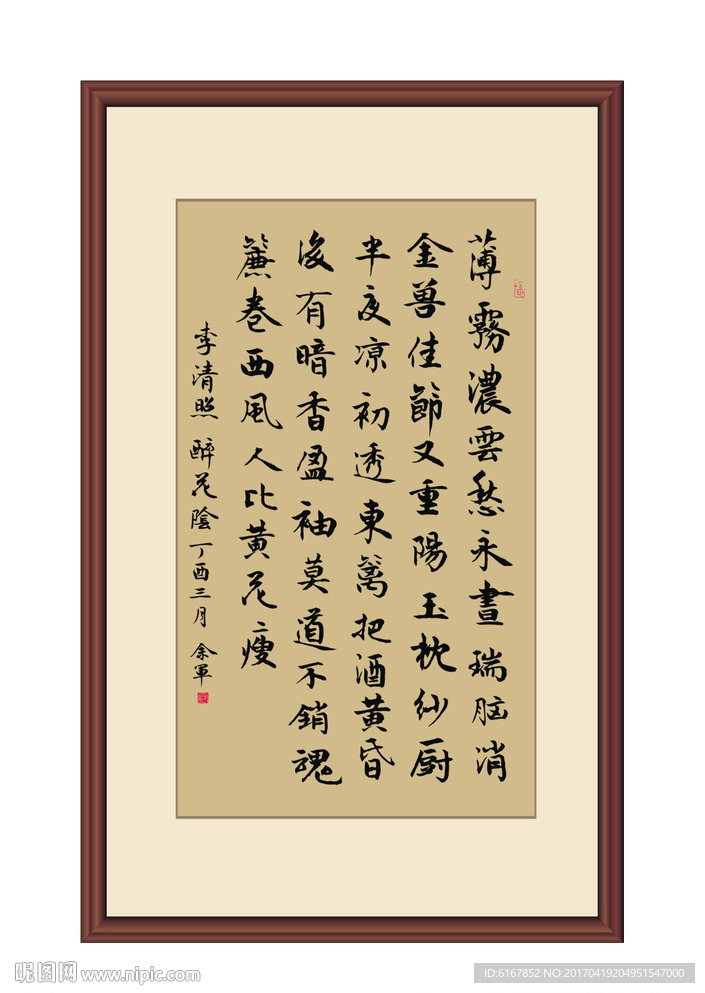 薄霧濃雲愁永晝瑞脑消
金兽佳節又重陽玉枕纱厨
半夜凉初透東篱把酒黄昏
後有暗香盈袖莫道不銷魂
簾卷西風人比黄花瘦
李清照醉花陰丁酉三月 余軍
昵图网 www.nipic.com
ID:6167852 NO:20170419204951547000